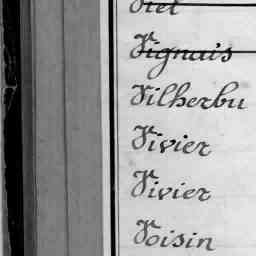 Viel
Vignais
Vilherbu
Vivier
Vivier
Voisin